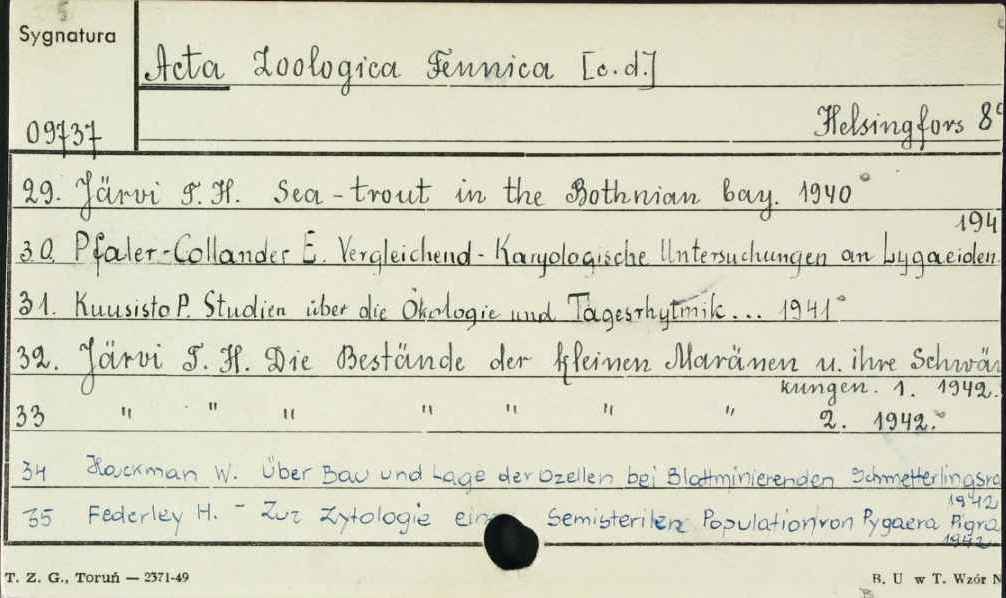 5
Sygnatura
Acta Zoologica Fennica [c.d.]
09737
Helsingfors 8°
29. Järvi T. H. Sea-trout in the Bothnian bay. 1940
194
30. Pfaler-Collander E. Vergleichend-Karyologische Untersuchungen an Lygaeiden
31. Kuusisto P. Studien über die Ökologie und Tagesrhytmik... 1941
32. Järvi T. H. Die Bestände der kleinen Maränen u. ihre Schwän
kungen. 1. 1942.
33 " " " " " " " 2. 1942.
34 Hackman W. Über Bau und Lage der Ozellen bei Blattminierenden Schmetterlingsra
1942
35 Federley H. - Zur Zytologie ein Semisterilen Population von Pygaera Pigra
1942
T. Z. G., Toruń — 2371-49
B. U w T. Wzór N